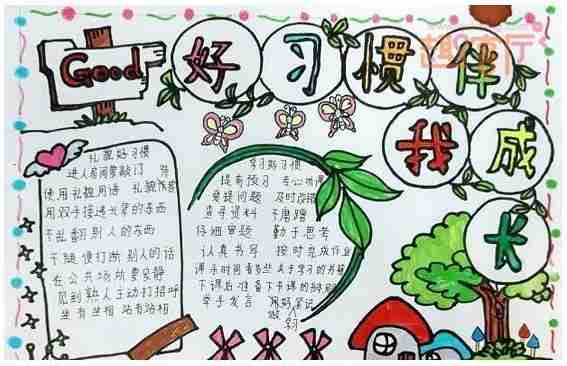 Good
好习惯伴
我成
长
礼貌好习惯
进人房间要敲门
使用礼貌用语 礼貌作客
用双手接递长辈的东西
不乱翻别人的东西
不随便打断别人的话
在公共场所要安静
见到熟人主动打招呼
坐有坐相 站有站相
学习好习惯
提前预习 专心听课
爱提问题 及时改错
查寻资料 不磨蹭
仔细审题 勤于思考
认真书写 按时完成作业
课余时间看些关于学习的书籍
下课后准备下节课的
举手发言 笔记